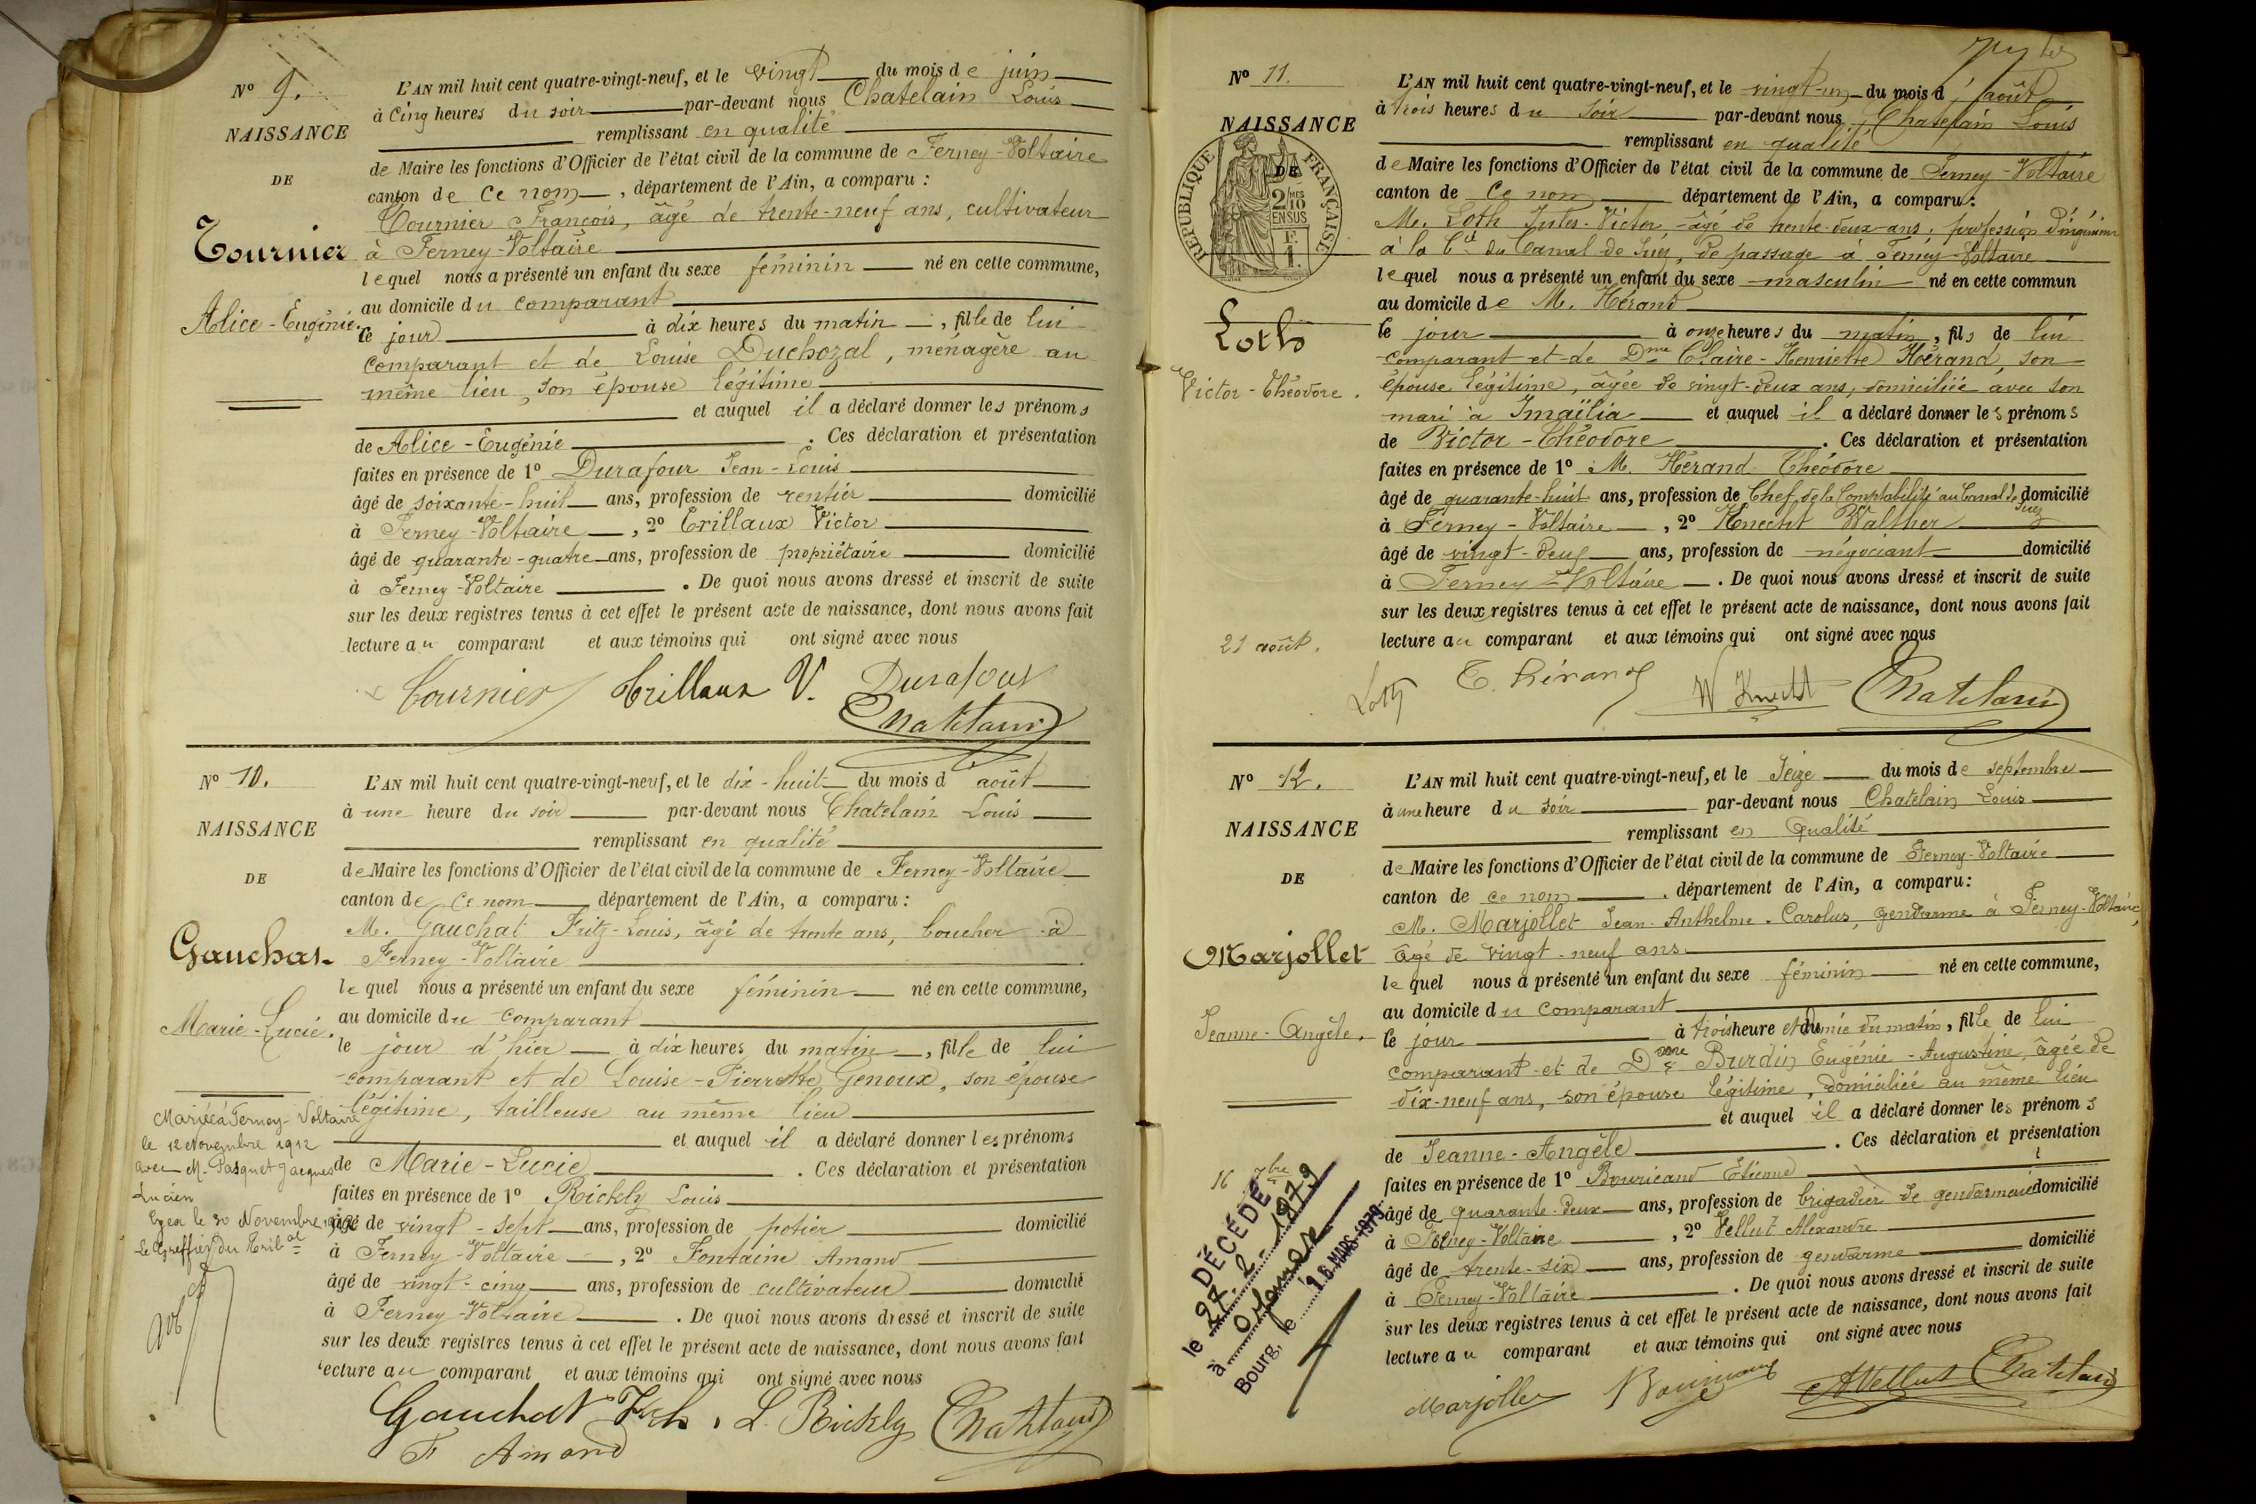 N° 9.
NAISSANCE
DE
Tournier
Alice-Eugénie.
L'AN mil huit cent quatre-vingt-neuf, et le vingt du mois de juin
à cinq heures du soir par-devant nous Chatelain Louis
remplissant en qualité
de Maire les fonctions d'Officier de l'état civil de la commune de Ferney-Voltaire
canton de ce nom, département de l'Ain, a comparu :
Tournier François, âgé de trente-neuf ans, cultivateur
à Ferney-Voltaire
lequel nous a présenté un enfant du sexe féminin né en cette commune,
au domicile du comparant
le jour à dix heures du matin, fille de lui
comparant et de Louise Duchozal, ménagère au
même lieu, son épouse légitime
et auquel il a déclaré donner les prénoms
de Alice-Eugénie. Ces déclaration et présentation
faites en présence de 1° Durafour Jean-Louis
âgé de soixante-huit ans, profession de rentier domicilié
à Ferney-Voltaire, 2° Trillaux Victor
âgé de quarante-quatre ans, profession de propriétaire domicilié
à Ferney-Voltaire. De quoi nous avons dressé et inscrit de suite
sur les deux registres tenus à cet effet le présent acte de naissance, dont nous avons fait
lecture au comparant et aux témoins qui ont signé avec nous
Tournier Trillaux V. Durafour
Chatelain
N° 10.
NAISSANCE
DE
Gauchat
Marie-Lucie.
Mariée à Ferney-Voltaire
le 12 Novembre 1912
avec M. Pasquet Jacques
Lucien
Gex le 30 Novembre 1912
Le Greffier du Tribal
L'AN mil huit cent quatre-vingt-neuf, et le dix-huit du mois d août
à une heure du soir par-devant nous Chatelain Louis
remplissant en qualité
de Maire les fonctions d'Officier de l'état civil de la commune de Ferney-Voltaire
canton de ce nom département de l'Ain, a comparu :
M. Gauchat Fritz-Louis, âgé de trente ans, boucher à
Ferney-Voltaire
lequel nous a présenté un enfant du sexe féminin né en cette commune,
au domicile du comparant
le jour d'hier à dix heures du matin, fille de lui
comparant et de Louise-Pierrette Genoux, son épouse
légitime, tailleuse au même lieu
et auquel il a déclaré donner les prénoms
de Marie-Lucie. Ces déclaration et présentation
faites en présence de 1° Rickly Louis
âgé de vingt-sept ans, profession de potier domicilié
à Ferney-Voltaire, 2° Fontaine Amand
âgé de vingt-cinq ans, profession de cultivateur domicilié
à Ferney-Voltaire. De quoi nous avons dressé et inscrit de suite
sur les deux registres tenus à cet effet le présent acte de naissance, dont nous avons fait
lecture au comparant et aux témoins qui ont signé avec nous
Gauchat L. Rickly Chatelain
F Amand
N° 11.
NAISSANCE
DE
REPUBLIQUE FRANÇAISE
2/10 EN SUS
Loth
Victor-Théodore.
21 août.
L'AN mil huit cent quatre-vingt-neuf, et le vingt-un du mois d'août
à trois heures du soir par-devant nous Chatelain Louis
remplissant en qualité
de Maire les fonctions d'Officier de l'état civil de la commune de Ferney-Voltaire
canton de ce nom département de l'Ain, a comparu :
M. Loth Jules-Victor, âgé de trente-deux ans, profession d'ingénieur
à la Cie du Canal de Suez, de passage à Ferney-Voltaire
lequel nous a présenté un enfant du sexe masculin né en cette commun
au domicile de M. Hérand
le jour à onze heures du matin, fils de lui
comparant et de Dme Claire-Henriette Hérand, son
épouse légitime, âgée de vingt-deux ans, domiciliée avec son
mari à Ismaïlia et auquel il a déclaré donner les prénoms
de Victor-Théodore. Ces déclaration et présentation
faites en présence de 1° M. Hérand Théodore
âgé de quarante-huit ans, profession de Chef de la Comptabilité au Canal de Suez domicilié
à Ferney-Voltaire, 2° Knecht Walther
âgé de vingt-deux ans, profession de négociant domicilié
à Ferney-Voltaire. De quoi nous avons dressé et inscrit de suite
sur les deux registres tenus à cet effet le présent acte de naissance, dont nous avons fait
lecture au comparant et aux témoins qui ont signé avec nous
Loth T. Hérand W Knecht Chatelain
N° 12.
NAISSANCE
DE
Marjollet
Jeanne-Angèle.
16 7bre
DÉCÉDÉE
le 27.2.1979
à
Bourg, le 16 MARS 1979
L'AN mil huit cent quatre-vingt-neuf, et le seize du mois de septembre
à une heure du soir par-devant nous Chatelain Louis
remplissant en qualité
de Maire les fonctions d'Officier de l'état civil de la commune de Ferney-Voltaire
canton de ce nom. département de l'Ain, a comparu :
M. Marjollet Jean-Anthelme-Carolus, gendarme à Ferney-Voltaire,
âgé de vingt-neuf ans
lequel nous a présenté un enfant du sexe féminin né en cette commune,
au domicile du comparant
le jour à trois heure et demie du matin, fille de lui
comparant et de Dme Burdin Eugénie-Augustine, âgée de
dix-neuf ans, son épouse légitime, domiciliée au même lieu
et auquel il a déclaré donner les prénoms
de Jeanne-Angèle. Ces déclaration et présentation
faites en présence de 1° Bouricand Etienne
âgé de quarante-deux ans, profession de brigadier de gendarmerie domicilié
à Ferney-Voltaire, 2° Vellut Alexandre
âgé de trente-six ans, profession de gendarme domicilié
à Ferney-Voltaire. De quoi nous avons dressé et inscrit de suite
sur les deux registres tenus à cet effet le présent acte de naissance, dont nous avons fait
lecture au comparant et aux témoins qui ont signé avec nous
Marjollet AVellut Chatelain